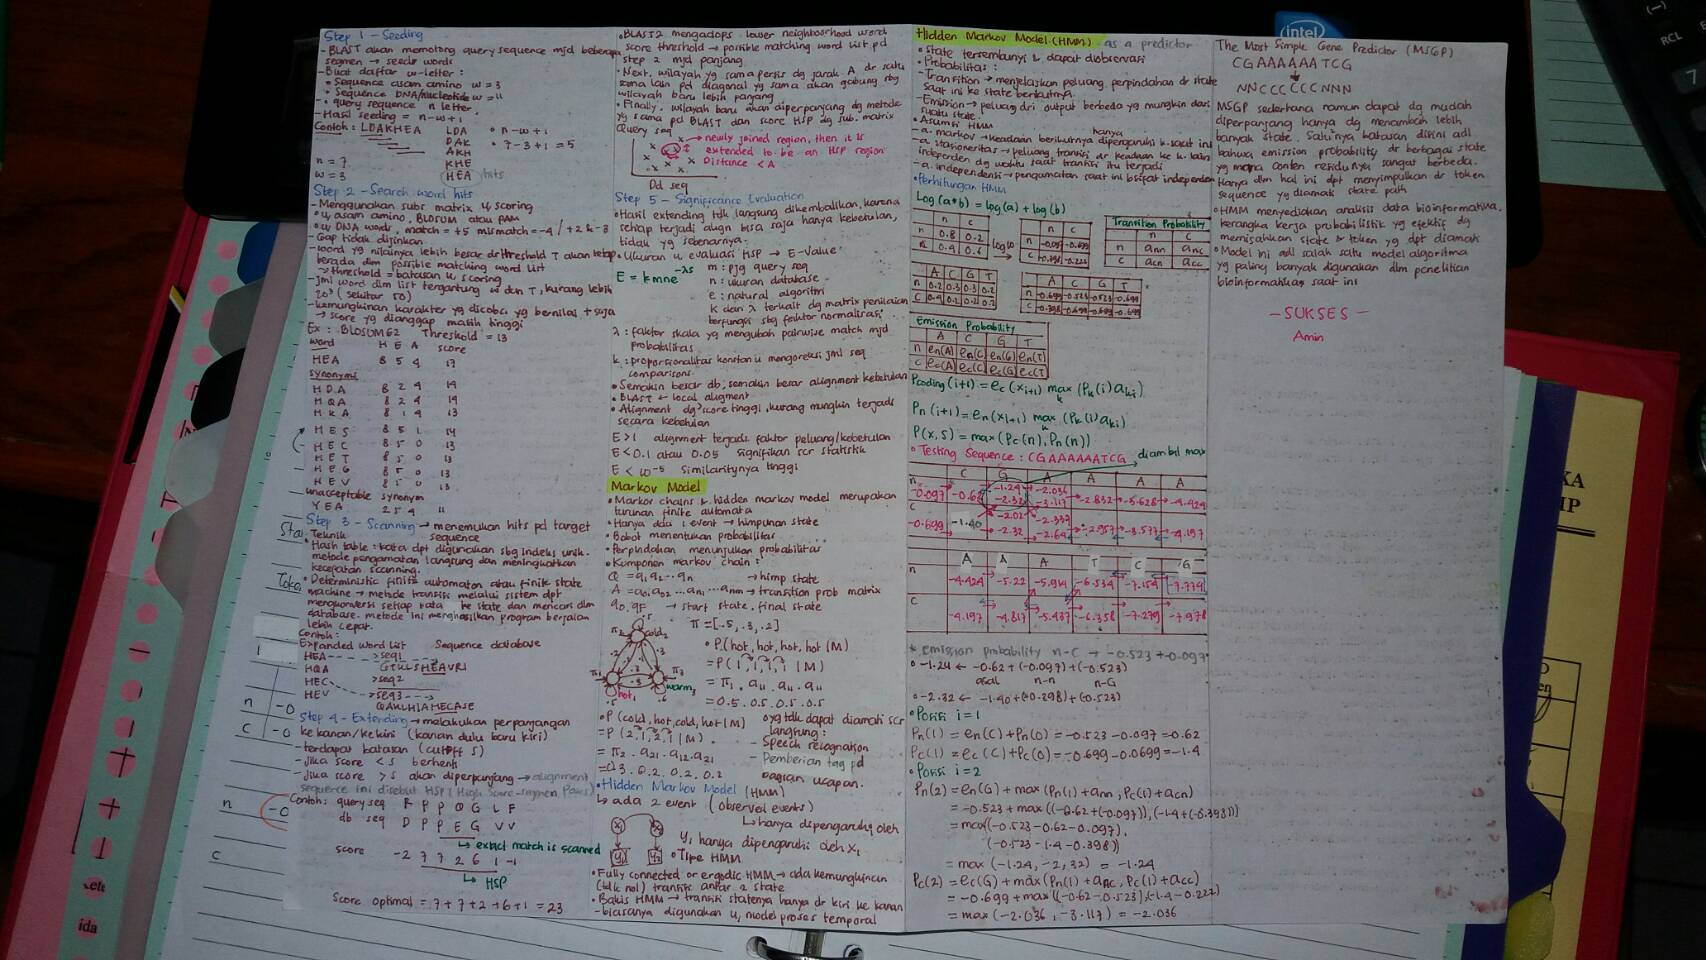 Step 1 - Seeding
- BLAST akan memotong query sequence mjd beberapa
segmen → seeds words
- Buat daftar w-letter :
• Sequence asam amino w = 3
• Sequence DNA/nucleotide w = 11
- query sequence n letter
- Hasil seeding = n-w+1
Contoh : LDAKHEA LDA • n-w+1
DAK • 7-3+1 = 5
AKH
n = 7 KHE
w = 3 HEA hits
Step 2 - Search word hits
- Menggunakan subs matrix u/ scoring
• u/ asam amino, BLOSUM atau PAM
• u/ DNA words, match = +5 mismatch = -4 / +2 & -3
- Gap tidak diijinkan
- word yg nilainya lebih besar dr threshold T akan tetap
berada dlm possible matching word list
→ threshold = batasan u/ scoring
- jml word dlm list tergantung w dan T, kurang lebih
(sekitar 50)
- kemungkinan karakter yg dicoba yg bernilai + saja
→ score yg dianggap masih tinggi
Ex : BLOSUM62 Threshold = 13
word H E A score
HEA 8 5 4 17
synonyms
HDA 8 2 4 14
HQA 8 2 4 14
HKA 8 1 4 13
HES 8 5 1 14
HEC 8 5 0 13
HET 8 5 0 13
HEG 8 5 0 13
HEV 8 5 0 13
unacceptable synonym
YEA 2 5 4 11
Step 3 - Scanning → menemukan hits pd target
sequence
Teknik
• Hash table : kata dpt digunakan sbg indeks unik.
metode pengamatan langsung dan meningkatkan
kecepatan scanning.
• Deterministic finite automaton atau finite state
machine → metode transisi melalui sistem dpt
mengkonversi setiap kata ke state dan mencari dlm
database. metode ini menghasilkan program berjalan
lebih cepat.
Contoh :
Expanded word list Sequence database
HEA → seq1
HQA GTKLSHEAVRI
HEC → seq2
HEV → seq3
QAKLHIAMECASE
Step 4 - Extending → melakukan perpanjangan
ke kanan/ke kiri (kanan dulu baru kiri)
- terdapat batasan (cutoff S)
- jika score < S berhenti
- jika score > S akan diperpanjang → alignment
sequence ini disebut HSP (High Score-segmen Pairs)
Contoh : query seq R P P Q G L F
db seq D P P E G V V
↳ exact match is scanned
score -2 7 7 2 6 1 -1
↳ HSP
Score optimal = 7 + 7 + 2 + 6 + 1 = 23
• BLAST2 mengadops lower neighboorhood word
score threshold → possible matching word list pd
step 2 mjd panjang
• Next, wilayah yg sama persis dg jarak A dr satu
sama lain pd diagonal yg sama akan gabung sbg
wilayah baru lebih panjang
• Finally, wilayah baru akan diperpanjang dg metode
yg sama pd BLAST dan score HSP dg sub. matrix
Query seq
newly joined region, then it is
extended to be an HSP region
Distance < A
Db seq
Step 5 - Significance Evaluation
• Hasil extending tdk langsung dikembalikan, karena
setiap terjadi align bisa saja hanya kebetulan,
tidak yg sebenarnya.
• Ukuran u/ evaluasi HSP → E-Value
E = kmne^-λs m : pjg query seq
n : ukuran database
e : natural algoritm
k dan λ terkait dg matrix penilaian
berfungsi sbg faktor normalisasi
λ : faktor skala yg mengubah pairwise match mjd
probabilitas
k : proporsionalitas konstan u/ mengoreksi jml seq
comparisons.
• Semakin besar db, semakin besar alignment kebetulan
• BLAST ← local alignment
• Alignment dg score tinggi, kurang mungkin terjadi
secara kebetulan
E > 1 alignment terjadi faktor peluang/kebetulan
E < 0.1 atau 0.05 signifikan scr statistik
E < 10^-5 Similaritynya tinggi
Markov Model
• Markov chains & hidden markov model merupakan
turunan finite automata
• Hanya ada 1 event → himpunan state
• Bobot menentukan probabilitas
• Perpindahan menunjukan probabilitas
• Komponen markov chain :
Q = q1 q2 ... qn → himp state
A = a01 a02 ... an1 ... anm → transition prob matrix
q0, qF → start state, final state
π = [.5, .3, .2]
cold2
hot1
warm3
• P(hot, hot, hot, hot |M)
= P(1,1,1,1 |M)
= π1 . a11 . a11 . a11
= 0.5 . 0.5 . 0.5 . 0.5
• P(cold, hot, cold, hot |M)
= P(2,1,2,1 |M)
= π2 . a21 . a12 . a21
= 0.3 . 0.2 . 0.2 . 0.2
• yg tdk dapat diamati scr
langsung :
- Speech recognation
- Pemberian tag pd
bagian ucapan.
• Hidden Markov Model (HMM)
↳ ada 2 event (observed events)
↳ hanya dipengaruhi oleh
y1 hanya dipengaruhi oleh x1
• Tipe HMM
• Fully connected or ergodic HMM → ada kemungkinan
(tdk nol) transisi antar 2 state
• Bakis HMM → transisi statenya hanya dr kiri ke kanan
- biasanya digunakan u/ model proses temporal
Hidden Markov Model (HMM) as a predictor
• State tersembunyi & dapat diobservasi
• Probabilitas :
- Transition → menjelaskan peluang perpindahan dr state
saat ini ke state berikutnya.
- Emission → peluang dri output berbeda yg mungkin dari
suatu state.
• Asumsi HMM
- a. markov → keadaan berikutnya hanya dipengaruhi k. saat ini
- a. stasioneritas → peluang transisi dr keadaan ke k. lain
independen dg waktu saat transisi itu terjadi
- a. independensi → pengamatan saat ini bsifat independen
• Perhitungan HMM
Log(a*b) = log(a) + log(b)
n c
n 0.8 0.2
0.4 0.6
log10
n c
n -0.097 -0.699
c -0.398 -0.222
Transition Probability
n c
n ann anc
c acn acc
A C G T
n 0.2 0.3 0.3 0.2
c 0.4 0.2 0.2 0.2
A C G T
n -0.699 -0.523 -0.523 -0.699
c -0.398 -0.699 -0.699 -0.699
Emission Probability
A C G T
n en(A) en(C) en(G) en(T)
c ec(A) ec(C) ec(G) ec(T)
Pcoding(i+1) = ec(xi+1) max k (Pk(i) aki)
Pn(i+1) = en(xi+1) max k (Pk(i) aki)
P(x,s) = max(Pc(n), Pn(n))
• Testing Sequence : CGAAAAAATCG diambil max
C G A A A A
n
-0.097 -0.62 -1.24 -2.036 -2.832 -5.628 -4.424
-2.32 -3.117
c
-2.02 -2.339
-0.699 -1.40 -2.32 -2.64 -2.957 -3.577 -4.197
A A A T C G
n
-4.424 -5.22 -5.914 -6.534 -7.154 -7.774
c
-4.197 -4.817 -5.437 -6.358 -7.279 -7.978
* emission probability n-C → -0.523 + 0.097
• -1.24 ← -0.62 + (-0.097) + (-0.523)
asal n-n n-G
• -2.32 ← -1.40 + (-0.298) + (-0.523)
• Posisi i = 1
Pn(1) = en(C) + Pn(0) = -0.523 - 0.097 = -0.62
Pc(1) = ec(C) + Pc(0) = -0.699 - 0.0699 = -1.4
• Posisi i = 2
Pn(2) = en(G) + max(Pn(1) + ann, Pc(1) + acn)
= -0.523 + max((-0.62 + (-0.097)), (-1.4 + (-0.398)))
= max((-0.523 - 0.62 - 0.097),
(-0.523 - 1.4 - 0.398))
= max(-1.24, -2,32) = -1.24
Pc(2) = ec(G) + max(Pn(1) + anc, Pc(1) + acc)
= -0.699 + max((-0.62 - 0.523), (-1.4 - 0.222))
= max(-2.036, -3.117) = -2.036
The Most Simple Gene Predictor (MSGP)
CGAAAAAATCG
NNCCCCCCNNN
MSGP sederhana namun dapat dg mudah
diperpanjang hanya dg menambah lebih
banyak state. Satu2nya batasan disini adl
bahwa emission probability dr berbagai state
yg mana conten residunya sangat berbeda.
Hanya dlm hal ini dpt menyimpulkan dr token
sequence yg diamati state path
• HMM menyediakan analisis data bioinformatika,
kerangka kerja probabilistik yg efektif dg
memisahkan state & token yg dpt diamati
• Model ini adl salah satu model algoritma
yg paling banyak digunakan dlm penelitian
bioinformatika saat ini
- SUKSES -
Amin
intel
RCL